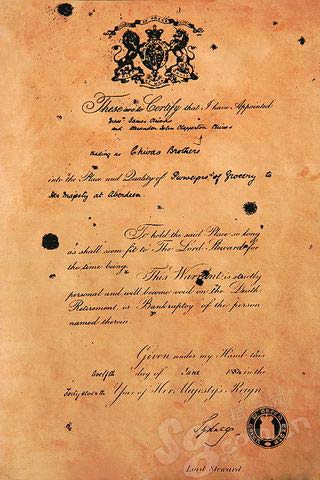 These are to Certify that I have Appointed
James Chivas
and Alexander John Clapperton Chivas
trading as Chivas Brothers
into the Place and Quality of of Grocery to
Her Majesty at Aberdeen.
To hold the said Place so long
as shall seem fit to The Lord Steward for
the time being.
This Warrant is strictly
personal and will become void on the Death
Retirement, or Bankruptcy of the person
named therein.
Given under my Hand this
twelfth day of June in the
Year of Her Majesty's Reign.
Sydney
Lord Steward